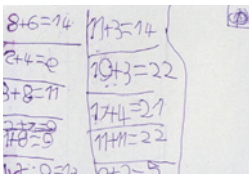 8+6=14
2+4=e
3+8=11
1+8=9
11+3=14
19+3=22
17+4=21
11+11=22